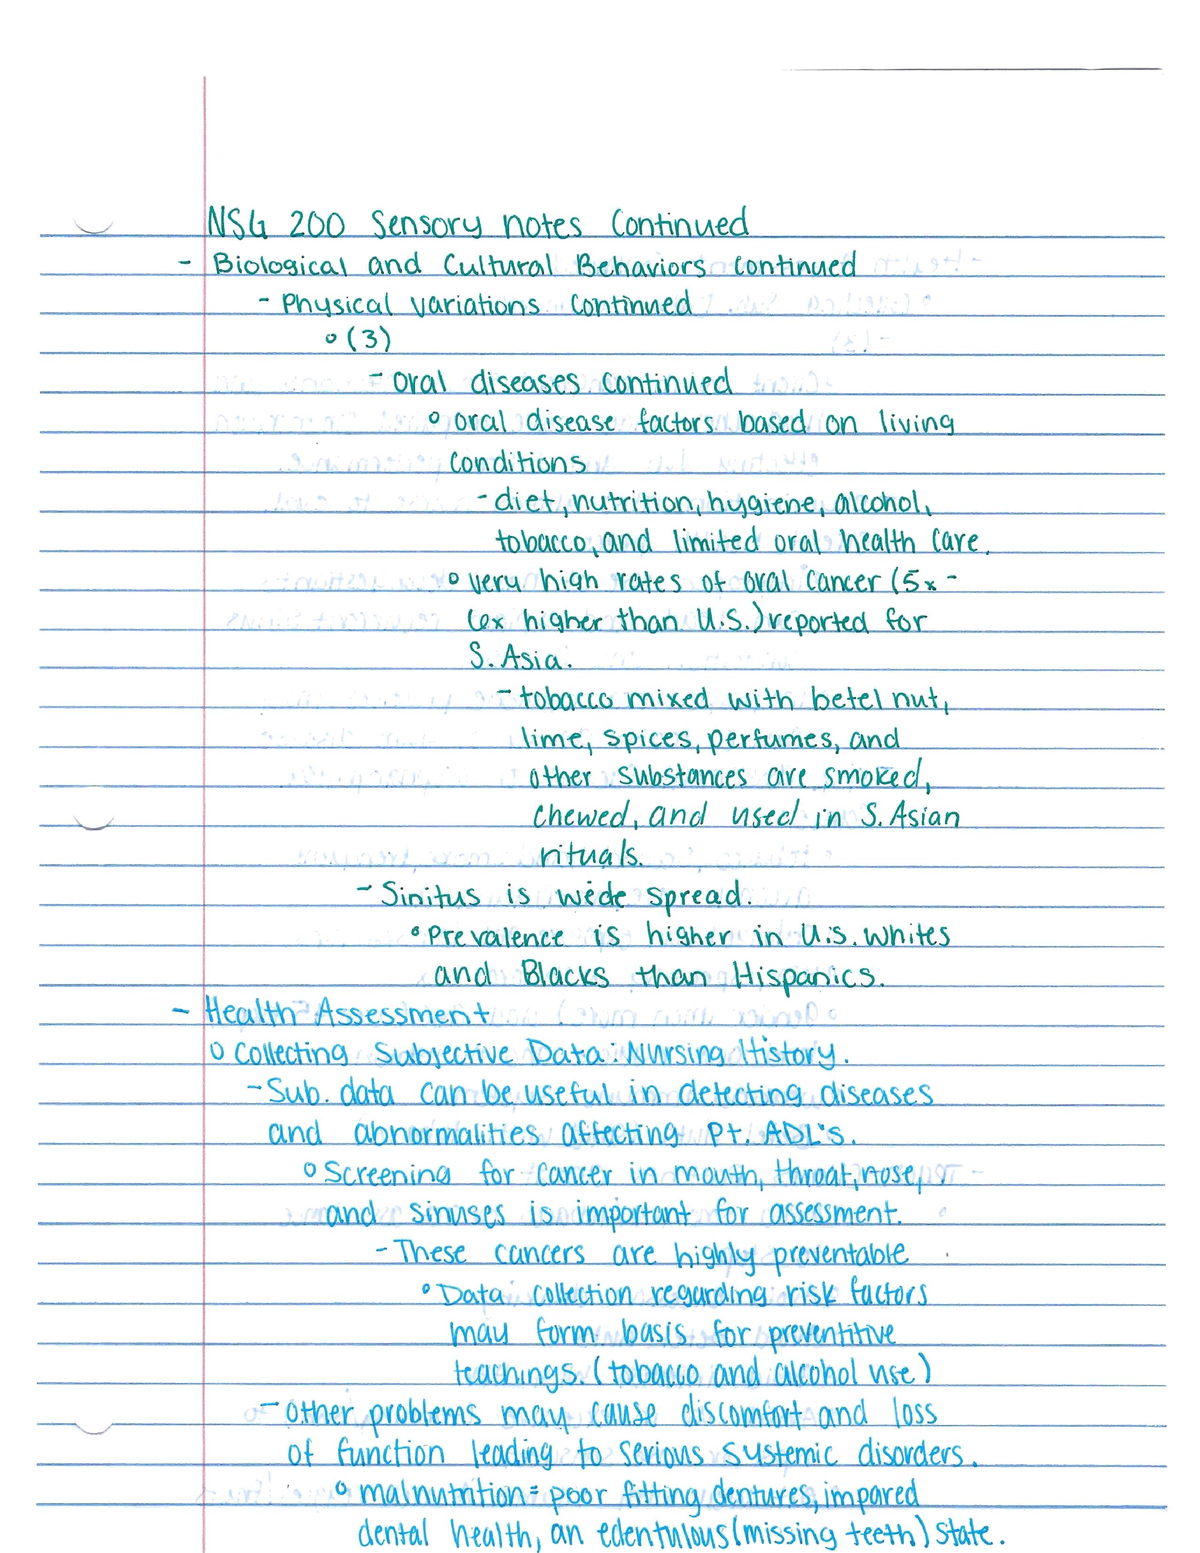 NSG 200 Sensory notes Continued
- Biological and Cultural Behaviors continued
- Physical variations continued
° (3)
- oral diseases continued
° oral disease factors based on living
conditions
- diet, nutrition, hygiene, alcohol,
tobacco, and limited oral health care.
° very high rates of oral cancer (5x -
6x higher than U.S.) reported for
S. Asia.
- tobacco mixed with betel nut,
lime, spices, perfumes, and
other substances are smoked,
chewed, and used in S. Asian
rituals.
- Sinitus is wide spread.
° Prevalence is higher in U.S. whites
and Blacks than Hispanics.
- Health Assessment
° Collecting Subjective Data: Nursing History.
- Sub. data can be useful in detecting diseases
and abnormalities affecting Pt. ADL's.
° Screening for cancer in mouth, throat, nose,
and sinuses is important for assessment.
- These cancers are highly preventable
° Data collection regarding risk factors
may form basis for preventitive
teachings. (tobacco and alcohol use)
- other problems may cause discomfort and loss
of function leading to serious systemic disorders.
° malnutrition = poor fitting dentures, impared
dental health, an edentulous (missing teeth) state.